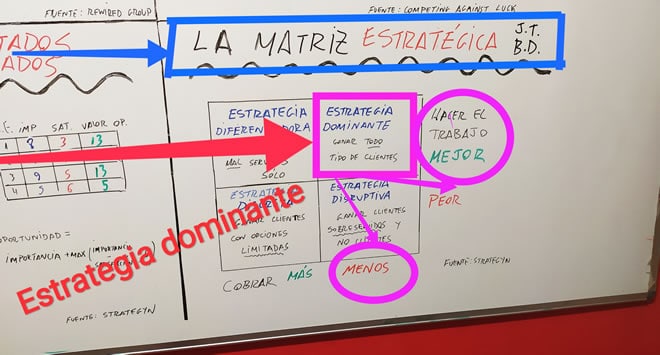 FUENTE: REWIRED GROUP
FUENTE: COMPETING AGAINST LUCK
TADOS
ADOS
LA MATRIZ ESTRATÉGICA J.T.
B.D.
IMP SAT. VALOR OP.
1 8 3 13
3 9 5 13
5 6 5
OPORTUNIDAD =
IMPORTANCIA + MAX (IMPORTANCIA
FUENTE: STRATEGYN
ESTRATEGIA
DIFERENCIADORA
SOLO
ESTRATEGIA
DOMINANTE
GANAR TODO
TIPO DE CLIENTES
HACER EL
TRABAJO
MEJOR
PEOR
ESTRATEGIA
CLIENTES
CON OPCIONES
LIMITADAS
ESTRATEGIA
DISRUPTIVA
GANAR CLIENTES
SOBRESERVIDOS Y
NO CLIENTES
COBRAR MÁS MENOS
FUENTE: STRATEGYN
Estrategia dominante